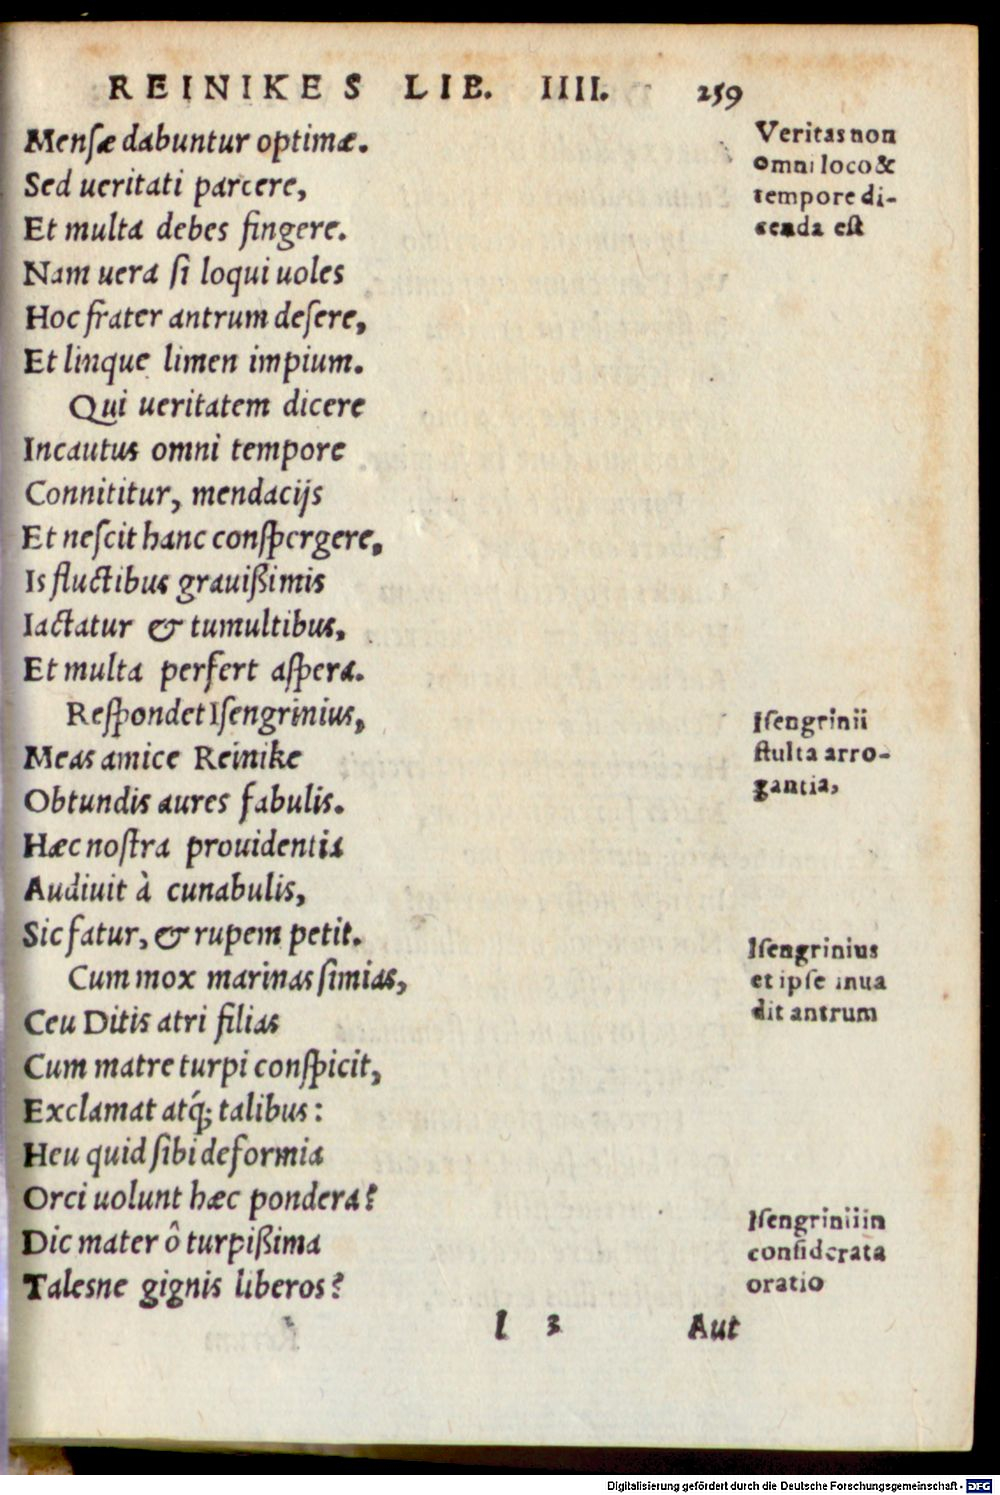 REINIKES LIB. IIII. 259
Mensæ dabuntur optimæ.
Sed ueritati parcere,
Et multa debes fingere.
Nam uera si loqui uoles
Hoc frater antrum desere,
Et linque limen impium.
Qui ueritatem dicere
Incautus omni tempore
Connititur, mendacijs
Et nescit hanc conspergere,
Is fluctibus grauißimis
Iactatur & tumultibus,
Et multa perfert aspera.
Respondet Isengrinius,
Meas amice Reinike
Obtundis aures fabulis.
Hæc nostra prouidentia
Audiuit à cunabulis,
Sic fatur, & rupem petit.
Cum mox marinas simias,
Ceu Ditis atri filias
Cum matre turpi conspicit,
Exclamat atq́; talibus:
Heu quid sibi deformia
Orci uolunt hæc pondera?
Dic mater ô turpißima
Talesne gignis liberos?
l 3 Aut
Veritas non
omni loco &
tempore di-
cenda est
Isengrinii
stulta arro-
gantia,
Isengrinius
et ipse inua
dit antrum
Isengrinii in
considerata
oratio
Digitalisierung gefördert durch die Deutsche Forschungsgemeinschaft - DFG